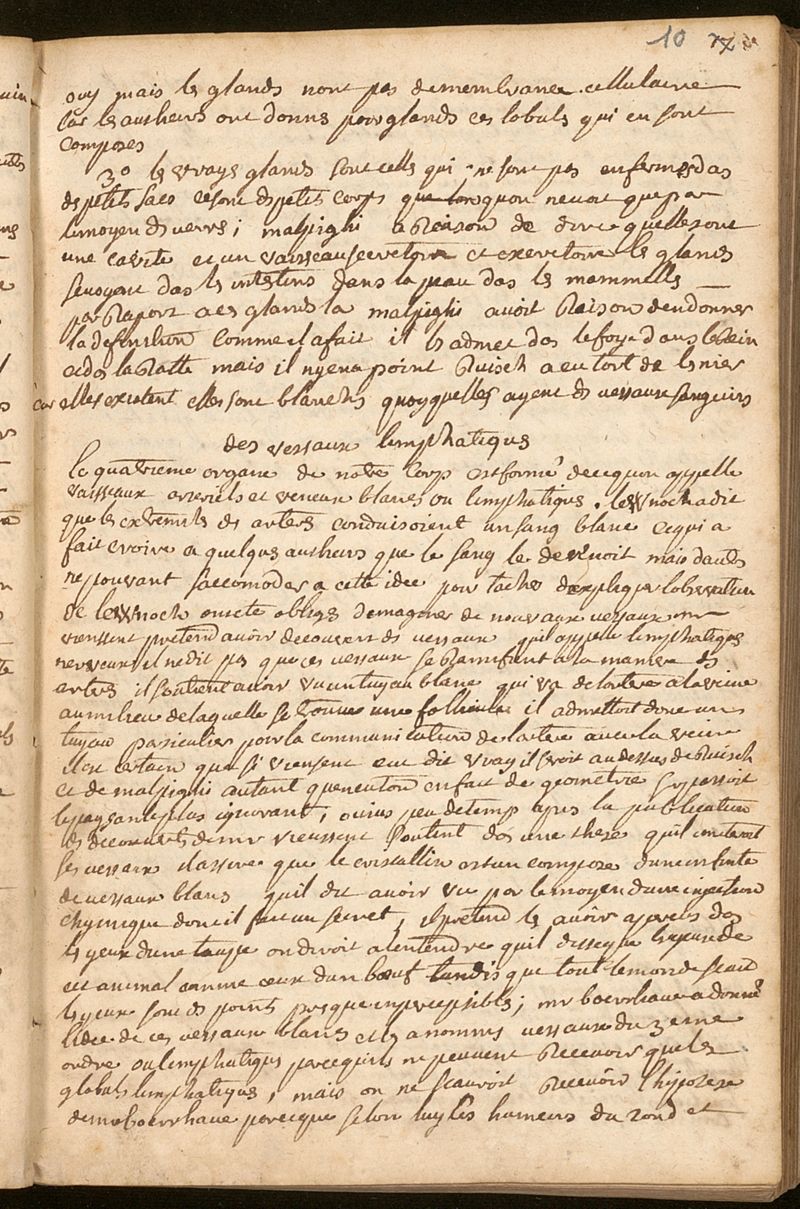 10
ouy mais les glands nont pas de membranee cellulaire
car les autheurs ont donné pour glands ces lobuls qui en sont
composes
3o les vrays glands sont celles qui ne sont pas enfermes das
des petits sacs ce sont des petits corps que lorsquon ne voit que par
le moyen des verres ; malpighi a Raison de dire quelles ont
une cavite et un vaisseau secretoire et excretoire les glands
se voyent das les intestins dans la peau das les mammells
par Raport a ces glands la malpighi avoit Raison den donner
la definition comme il a fait il ls admet das le foye dans le Rein
et das la Ratte mais il ny en a point Ruisch a eu tort de ls nier
car elles existent elles sont blanchs quoyquelles ayent des vessaux sanguins
des vessaux limphatiques
le quatrieme organe de notre corps est formé de ce quon appelle
vaisseaux arteriels et veneux blancs ou limphatiques . lewnoch a dit
que les extremits des arters conduisoient un sang blanc ce qui a
fait croire a quelques autheurs que le sang le devenoit mais dautrs
ne pouvant saccomoder a cette idee pour tacher dexpliquer lobservation
de lewnoch ont ete obligs dimaginer de nouvaux vessaux mr
vieussent pretend avoir decouvert ds vessaux quil appelle limphatiques
nerveux il ne dit pas que ces vessaux se Ramifient a la maniere ds
arters il soutient avoir vu un tuyau blanc qui va de lartere a la veine
au milieu de laquelle se trouve une follicule il admettoit donc un
tuyau particulier pour la communication de lartere avec la veine
il est certain que si vieussent eut dit vray il seroit au dessus de Ruisch
et de malpighi autant que neuton en fait de geometrie surpassoit
le paysan le plus ignorant, peu de temp apres la publication
ds decouverts de mr vieussent soutint das une these quil
ses vessaux il assure que le cristallin est un compose dune infinite
de vessaux blancs quil dit avoir vu par le moyen dune injection
chymique dont il fait un secret, il pretend ls avoir apercus das
ls yeux dune taupe on diroit a lentendre quil disseque les yeux de
cet animal comme ceux dun boeuf tandis que tout le monde scait
ls yeux sont ds points presque imperceptibles ; mr boerrhaave a donné
lidee de ces vessaux blancs et ls a nommes vessaux du 3eme
ordre ou limphatiques parcequils ne peuvent Recevoir que les
globuls limphatiques, mais on ne scauroit Recevoir lhypotese
de mr boerrhaave parceque selon luy les humeurs du rond et